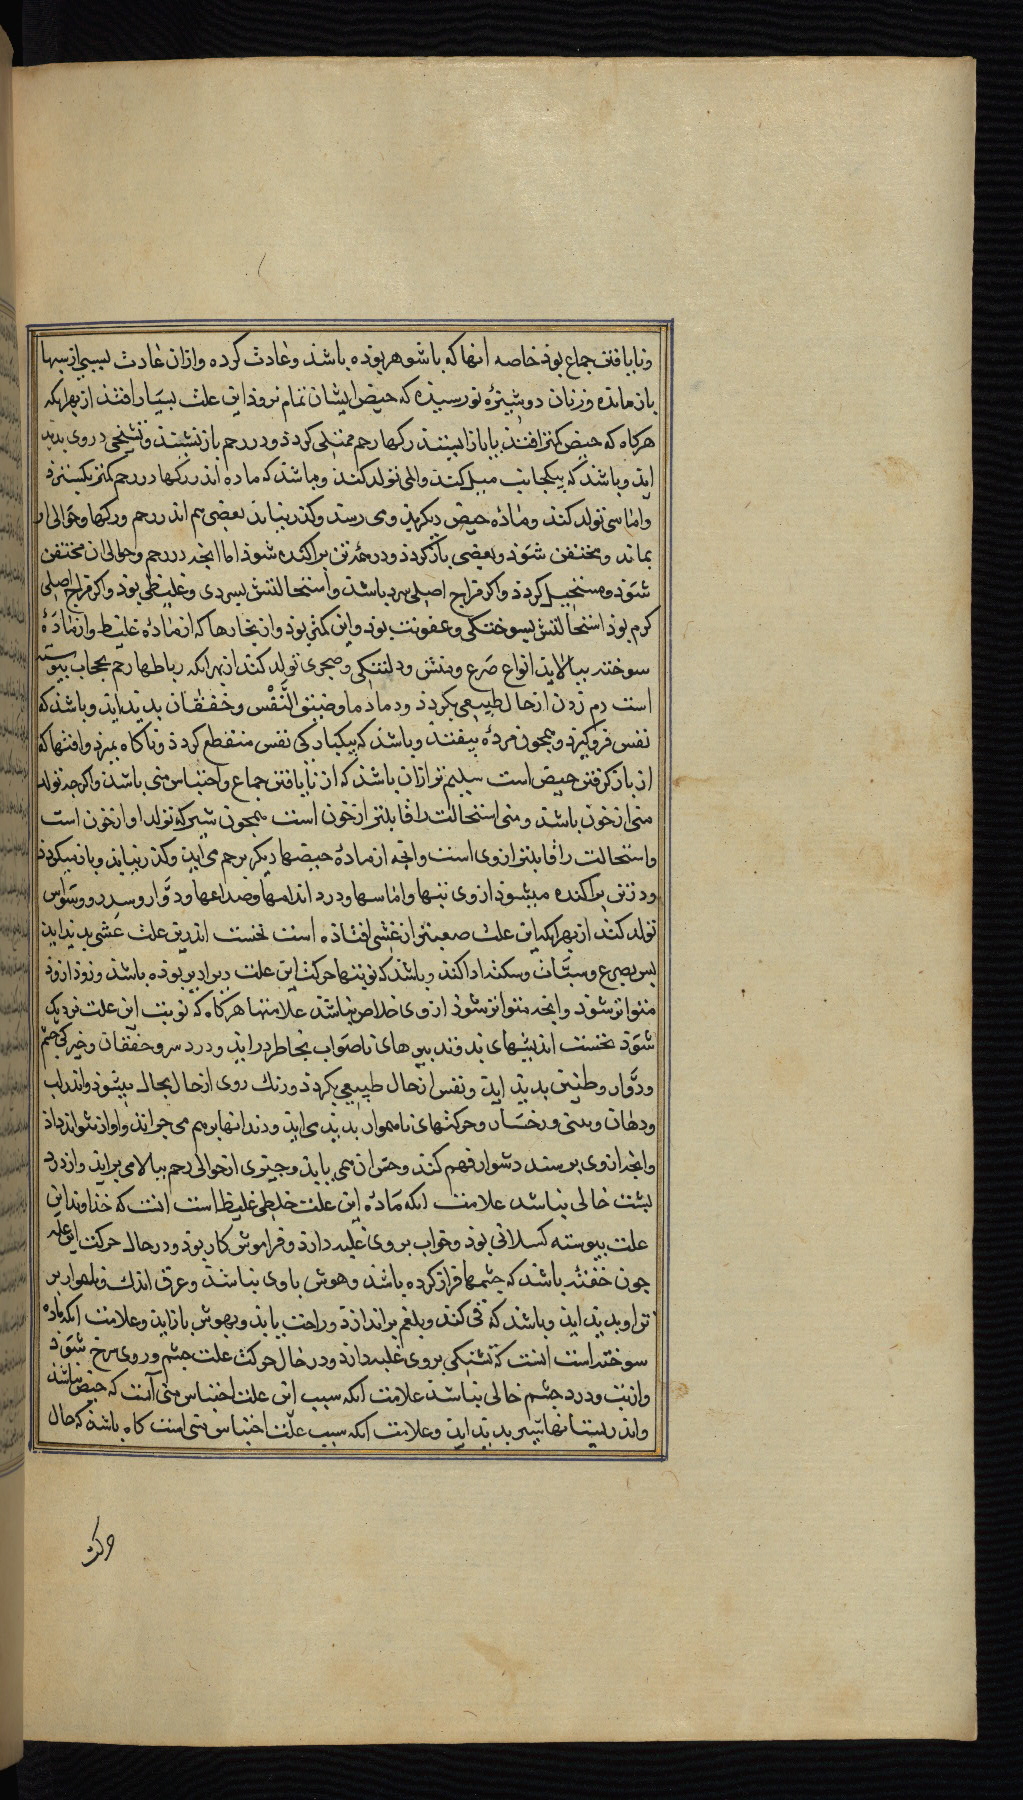 و نایافتن جماع بوذ خاصه انها که با شوهر بوذه باشند و عادت کرده و ازان عادت بسببی از سببها
باز مانده و زنان دوشیزهٔ نورسیده که حیض ایشان تمام نروذ این علت بسیار افتذ از بهر انکه
هرکاه که حیض کمتر افتذ یا باز ایستذ رکهاء رحم ممتلی کردذ و در رحم باز نشیند و تشنجی در وی بدید
اید و باشذ که بیکجانب میل کند و المی تولد کند و باشذ که ماده اندر رکهاء رحم کمتر بکسترذ
و اماسی تولد کند و مادهٔ حیض دیکر بذو می رسد و کذر نیابذ بعضی هم اندر رحم و رکها و حوالی او
بماند و مختنق شوذ و بعضی باز کردذ و در همه تن براکنده شوذ اما انچه در رحم و حوالی ان مختنق
شوذ و مستحیل کردذ و اکر مزاج اصلی سرد باشذ استحالتش بسردی و غلیظی بوذ و اکر مزاج اصلی
کرم بوذ استحالتش بسوختکی و عفونت بوذ و این کمتر بوذ و از بخارها که از مادهٔ غلیظ و از مادهٔ
سوخته ببالا اید انواع صرع و غشی و دلتنکی و ضجری تولد کند از بهر انکه رباطهاء رحم بحجاب پیوسته
است دم زدن از حال طبیعی بکردذ و دمادم ما و ضیق النفس و خفقان بدید اید و باشذ که
نفس فرو کیرد و همجون مردهٔ بیفتد و باشذ که بیکبارکی نفس منقطع کردذ و ناکاه بمیرذ و افتها که
از باز کرفتن حیض است سلیم تر ازان باشذ که از نایافتن جماع و احتباس منی باشذ و اکرجه تولد
منی از خون باشذ و منی استحالت را قابلتر از خون است همجون شیر که تولد او از خون است
و استحالت را قابلتر از وی است و انجه از مادهٔ حیضهاء دیکر برحم می ایذ و کذر نیابذ و باز میکردذ
و در تن براکنده میشوذ از وی تبها و اماسها و درد اندامها و صداعها و دوار و سدر و وسواس
تولد کند از بهر انکه این علت صعبتر از غشی افتاذه است نخست اندرین علت غشی بدید اید
پس بصرع و سبات و سکته ادا کند و باشذ که نوبتها حرکت این علت دیرادیر بوذه باشذ و زوذ ازوذ
متواتر شوذ و انجه متواتر شوذ از وی خلاص نباشذ علامتها هرکاه که نوبت این علت نزدیک
شوذ نخست اندیشهای بد و تدبیرهای ناصواب بخاطر در ایذ و درد سر و خفقان و خیرکی جشم
و دوار و طنین بدید اید و نفس از حال طبیعی بکردذ و رنک روی از حال بحال میشوذ و اندر لب
و دهان و بینی و رخسار و حرکتهای ناهموار بدید می اید و دندانها برهم می جراند و اواز نتواند داد
و انجه از وی برسند دشوار فهم کند و حیران می بایذ و جیزی از حوالی رحم ببالا می براید و از درد
پشت خالی نباشد علامت انکه مادهٔ این علت خلطی غلیظ است انست که خذاوند این
علت پیوسته کسلانی بوذ و خواب بر وی غلبه دارذ و فراموش کار بوذ و در حال حرکت این علت
جون خفته باشذ که جشمها فراز کرده باشذ و هوش با وی نباشد و عرق اندک و ناهموار بر
تن او بدید اید و باشذ که قی کند و بلغم براندازذ و راحت یابذ و بهوش باز ایذ و علامت انکه ماده
سوخته است انست که تشنکی بر وی غلبه دارد و در حال حرکت علت جشم و روی سرخ شوذ
و از تب و درد جشم خالی نباشد علامت انکه سبب این علت احتباس منی آنست که حیض نباشد
و اندر پستانها شیر بدید اید و علامت انکه سبب علت احتباس منی است کاه باشذ که حال